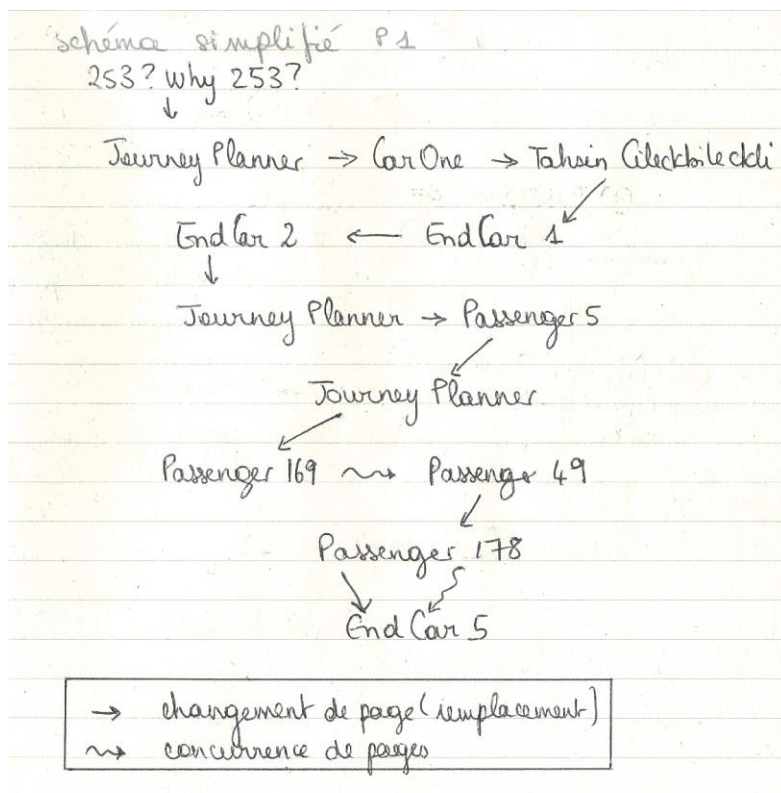 schéma simplifié P1
253? why 253?
↓
Journey Planner → Car One → Tahsin Cileckbileckli
↙
End Car 2 ← End Car 1
↓
Journey Planner → Passenger 5
↙
Journey Planner
↙
Passenger 169 ⇝ Passenger 49
↙
Passenger 178
↘ ⇝
End Car 5
→ changement de page (remplacement)
⇝ concurrence de pages